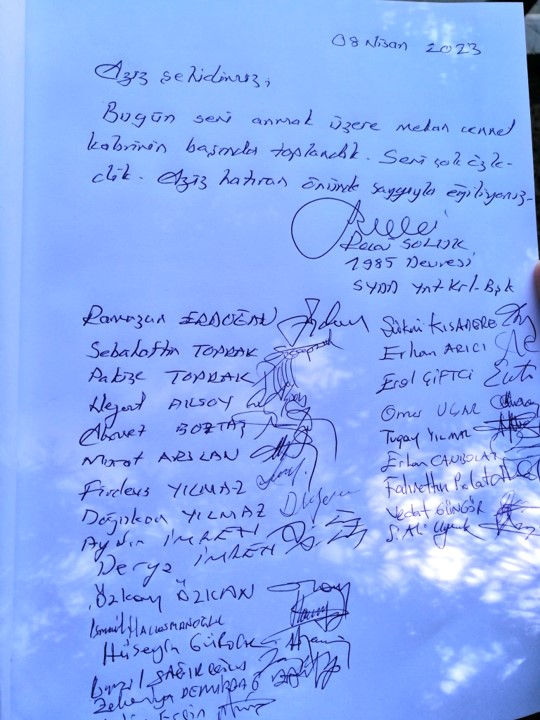 08 Nisan 2023
Aziz şehidimiz,
Bugün seni anmak üzere mekan cennet
kabrinin başında toplandık. Seni çok özle-
dik. Aziz hatıran önünde saygıyla eğiliyoruz.
SOLUK
1985 Devresi
SYDD Ynt Krl. Bşk
Ramazan ERDOĞAN
Sebahattin TOPRAK
Pakize TOPRAK
AKSOY
Ahmet BOZTAŞ
Murat ARSLAN
Firdevs YILMAZ
Doğukan YILMAZ
Aydın İMREN
Derya İMREN
Özkan ÖZKAN
İsmail
Hüseyin
Zekeriya DEMİRDAĞ
Şükrü KISADERE
Erhan ARICI
Erol ÇİFTCİ
Omer UÇAR
Tugay YILMAZ
Erhan CANBOLAT
Fahrettin
Vedat GÜNGÖR